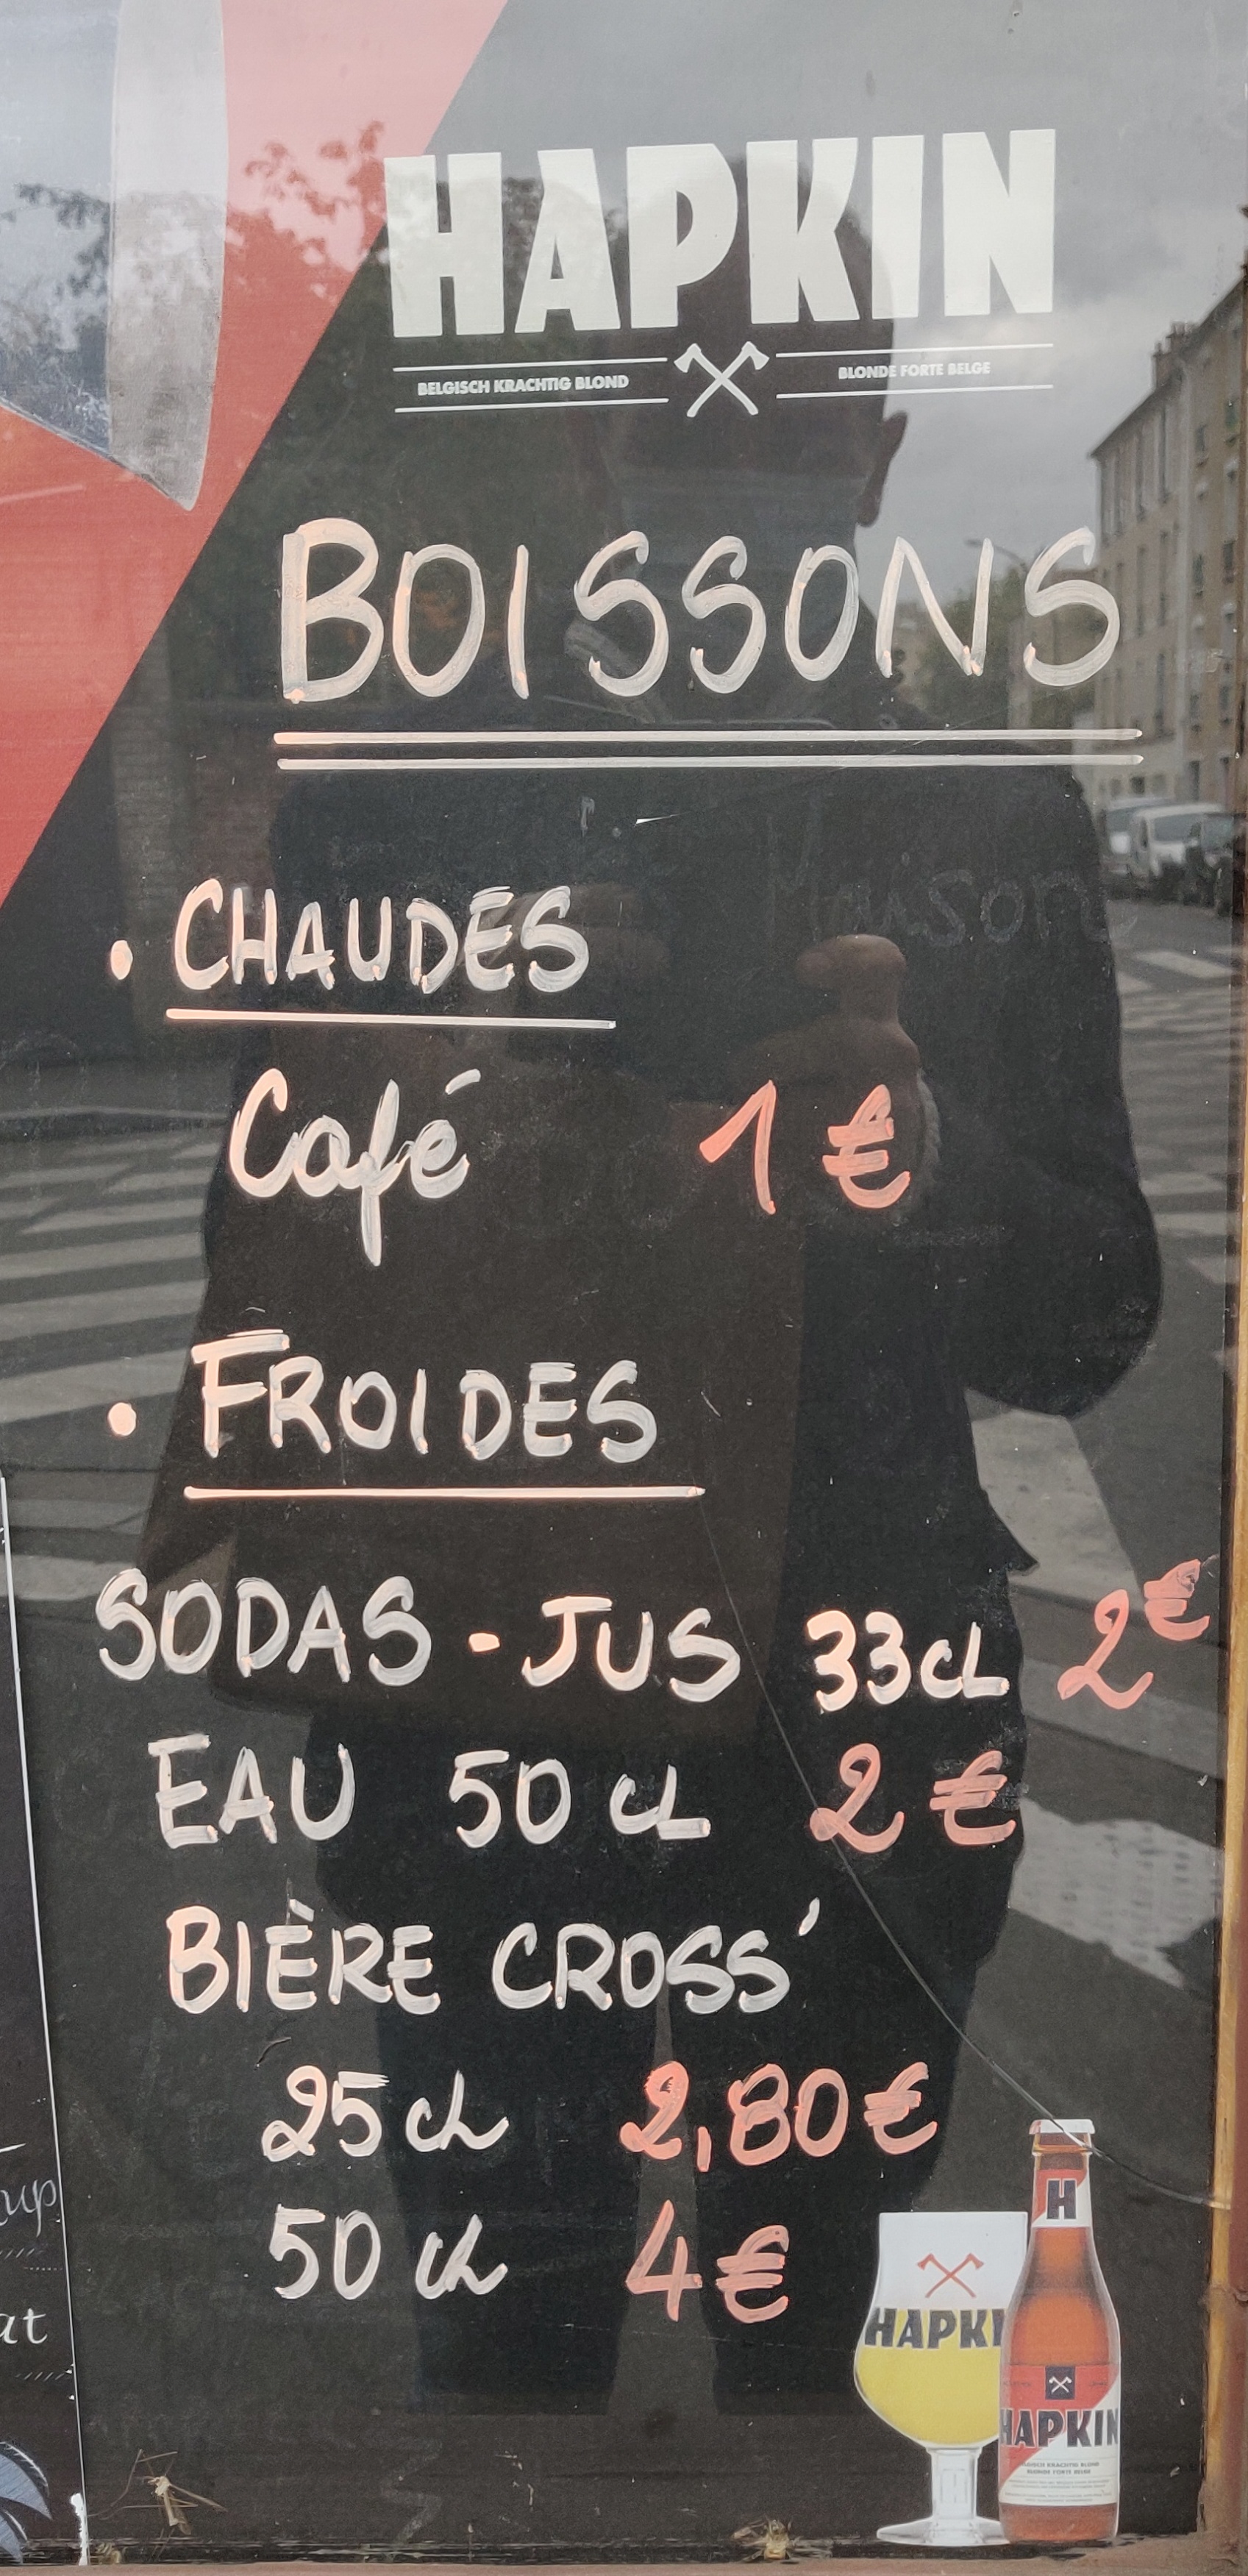 HAPKIN
BELGISCH KRACHTIG BLOND BLONDE FORTE BELGE
BOISSONS
Maison
• CHAUDES
Café 1 €
• FROIDES
SODAS - JUS 33cL 2€
EAU 50 cL 2 €
BIÈRE CROSS'
25 cl 2,80 €
50 cl 4 €
H
HAPKI
HAPKIN
BELGISCH KRACHTIG BLOND
BLONDE FORTE BELGE
oup
at